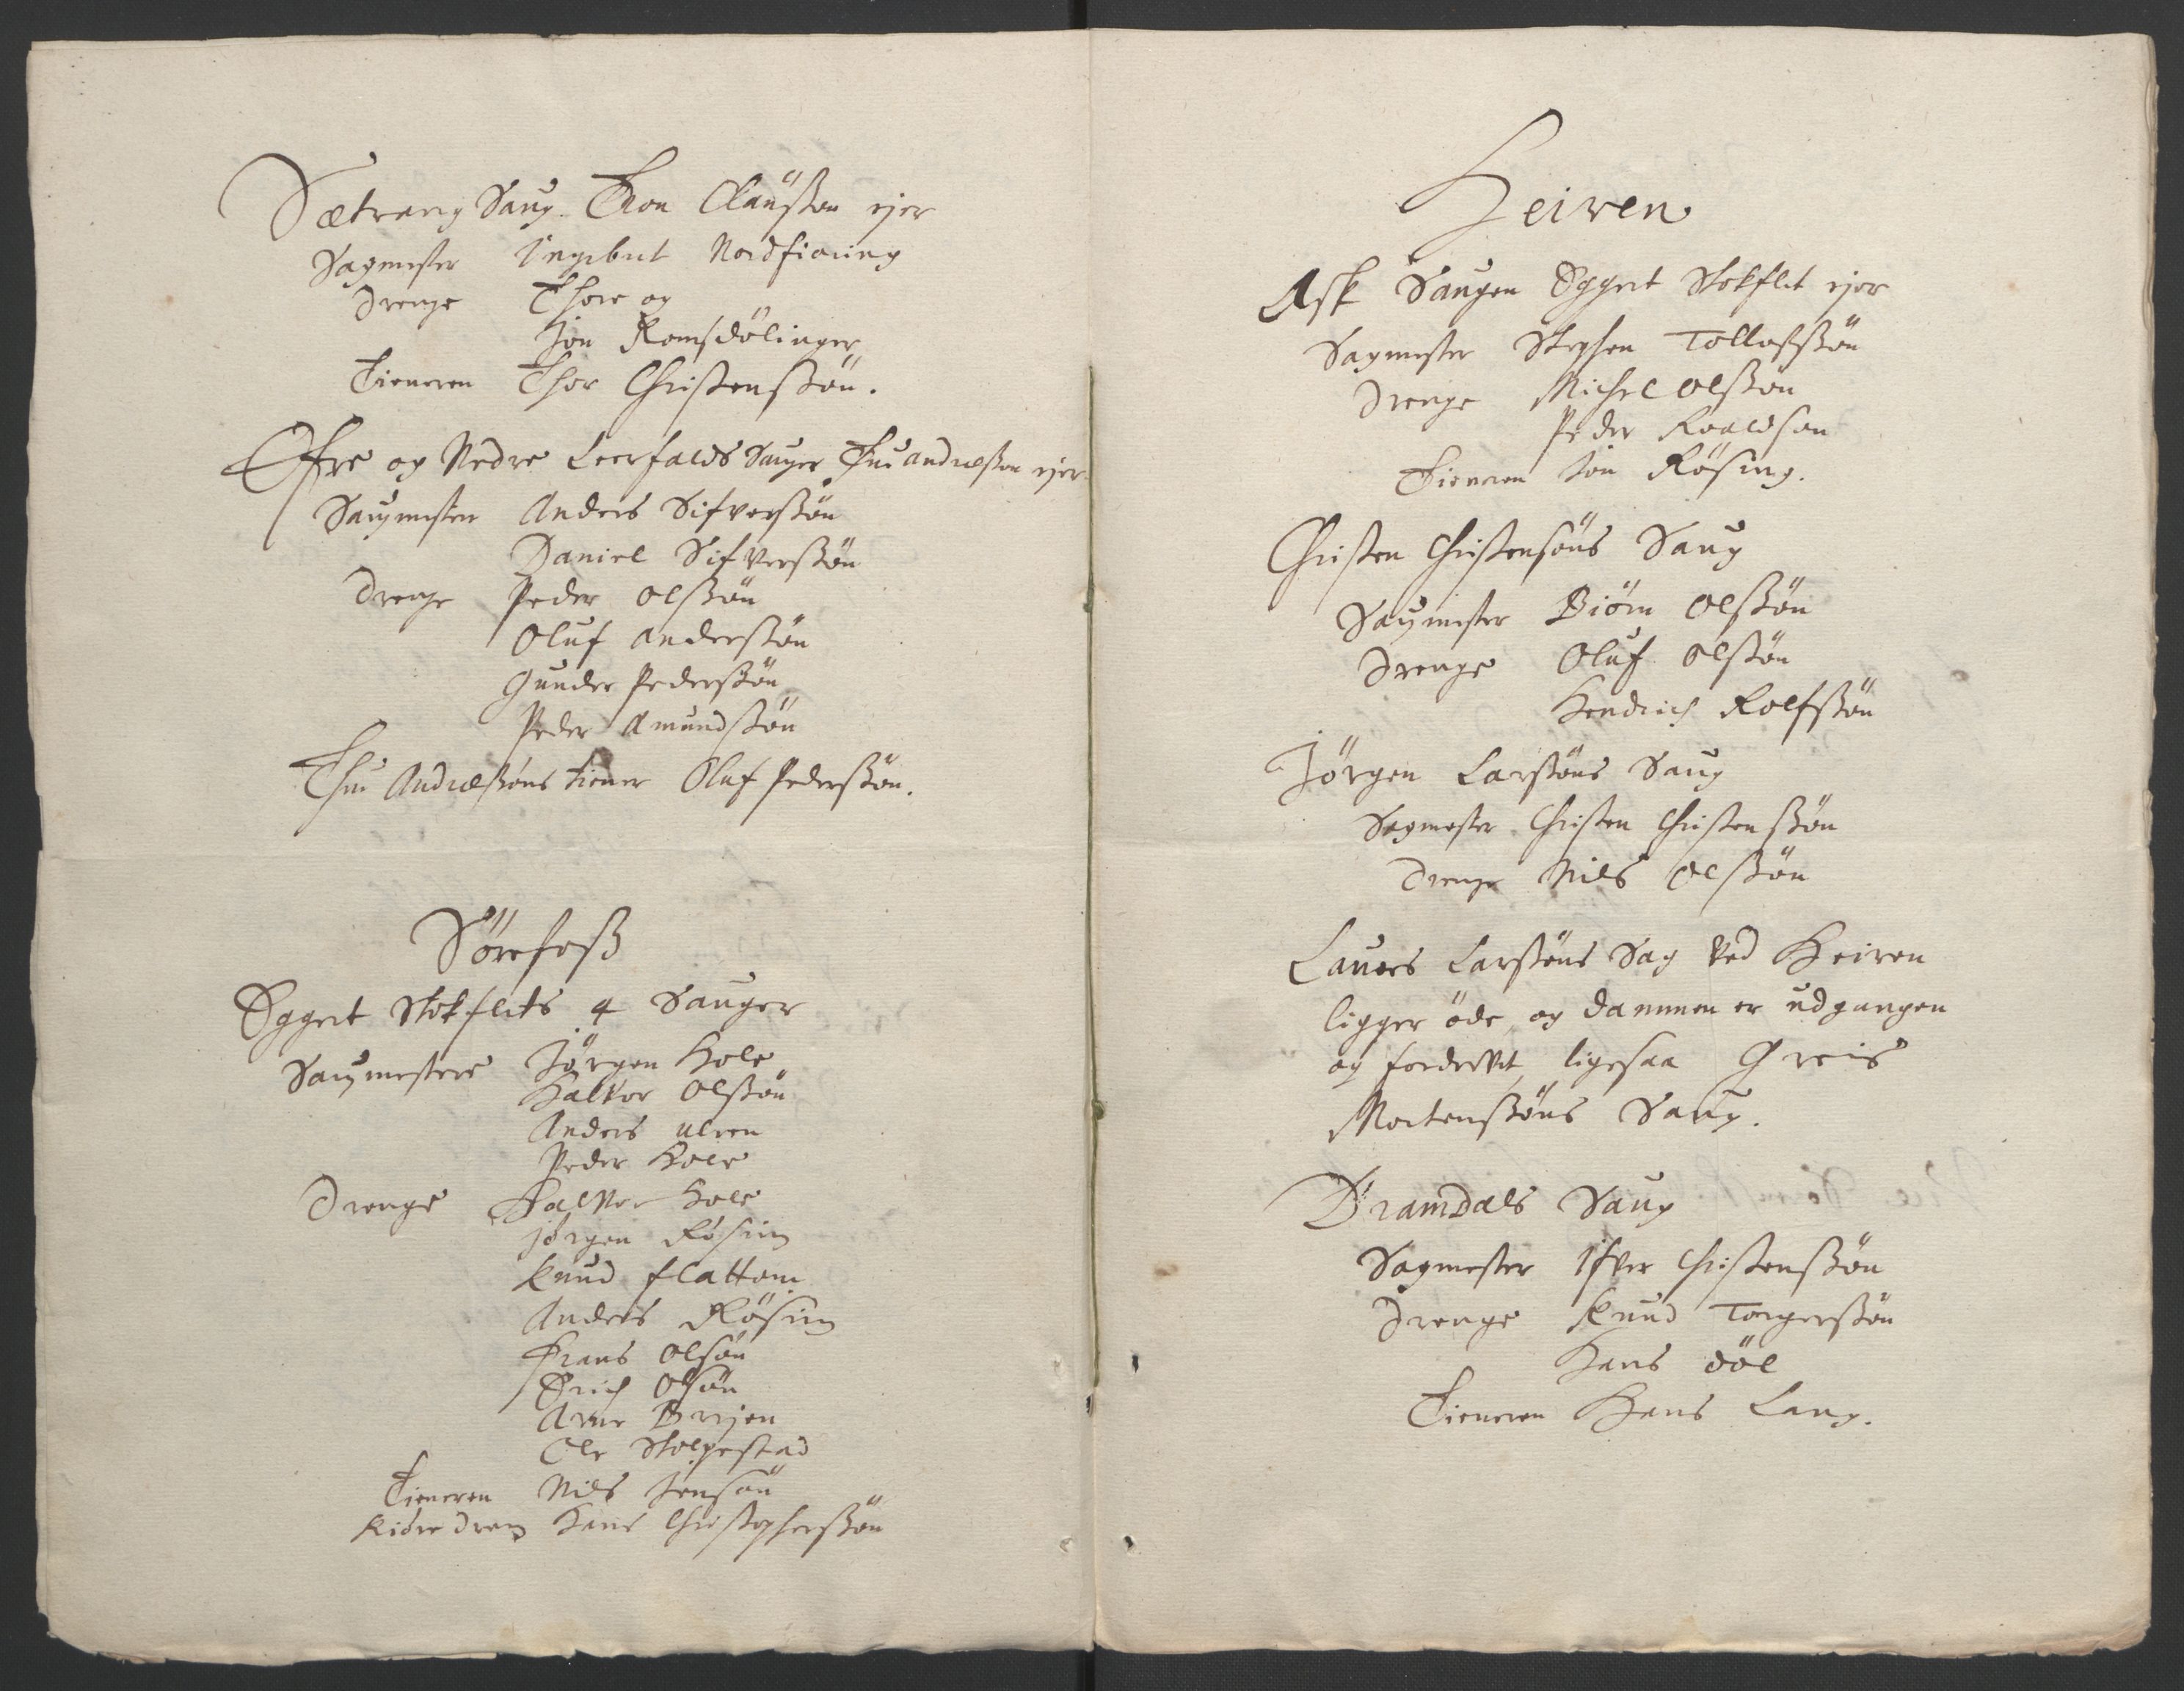 Sætrang Saug Thon Clausßøn ejer
Sagmester Ingebret Nordfiøring
Drenge Thore og
Jon Romsdølinger
Tieneren Thor Christensßøn.
Øfre og Nedre Leerfalds Sauger Thue Andræßøn ejer
Saugmester Anders Sifverßøn
Daniel Sifverßøn
Drenge Peder Olßøn
Oluf Anderßøn
Gunder Pederßøn
Peder Amundßøn
Thue Andræßøns tiener Oluf Pederßøn.
Sørefoß
Eggert Stokflets 4 Sauger
Saugmestere Jørgen Hole
Halvor Olßøn
Anders
Peder Hole
Drenge Halvor Hole
Jørgen Røsing
Knud Flattom
Anders Røsing
Frans Olsøn
Erich Olsøn
Arne Breien
Ole Stolpestad
Tieneren Nils Jensøn
Kiøre dreng Hans Christopherßøn
Heiren
Ask Saugen Eggert Stokflet ejer
Sagmester Stephen Tollofsßøn
Drenge Michel Olßøn
Peder Roaldsøn
Tieneren Jon Røsing.
Christen Christensøns Saug
Saugmester Biørn Olßøn
Drenge Oluf Olßøn
Hendrich Rolfsßøn
Jørgen Larßøns Saug
Sagmester Christen Christensßøn
Drenge Nils Olßøn
Lauers Larßøns Sag ved Heiren
ligger øde, og dammen er udgangen
og forderfvet, ligesaa Greis
Mortensßøns Saug.
Bramdals Saug
Sagmester Ifver Christensßøn
Drenge Knud Torgersßøn
Hans Døl
Tieneren Hans Lang.